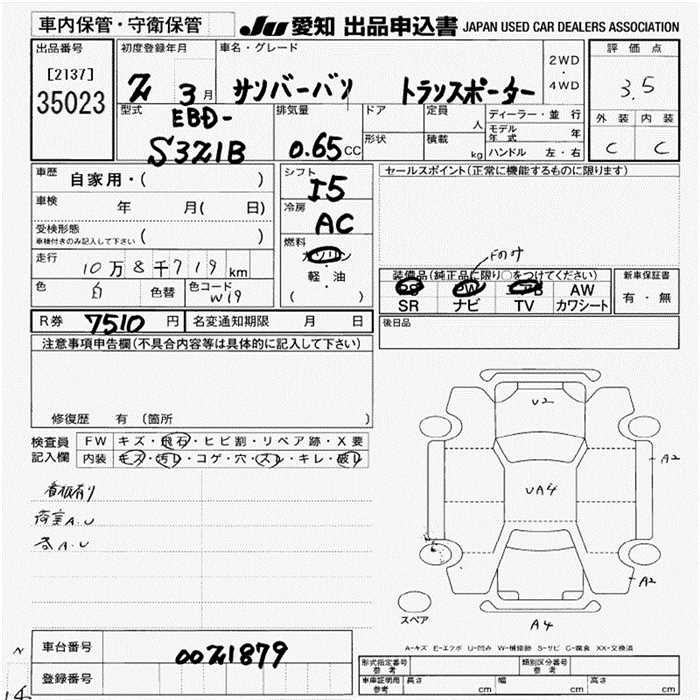 車内保管・守衛保管
JU 愛知 出品申込書 JAPAN USED CAR DEALERS ASSOCIATION
出品番号
[2137]
35023
初度登録年月
3月
車名・グレード
サンバーバン トランスポーター
2WD
・
4WD
評価点
3.5
外装 内装
C C
型式
EBD-
S321B
排気量
0.65 CC
ドア
形状
定員 人
積載 kg
ディーラー・並行
モデル年式 年
ハンドル 左・右
車歴 自家用・( )
車検 年 月( 日)
受検形態
車検付きのみ記入して下さい ( )
走行 10万8千719km
色 白 色替 色コード W19
シフト
I5
冷房
AC
燃料
ガソリン
・
軽・油
( )
セールスポイント(正常に機能するものに限ります)
Fのみ
装備品(純正品に限り○をつけてください)
PS PW AB AW
SR ナビ TV カワシート
新車保証書
有・無
後日品
R券 7510 円 名変通知期限 月 日
注意事項申告欄(不具合内容等は具体的に記入して下さい)
修復歴 有 〔箇所 〕
検査員
記入欄
FW キズ・飛石・ヒビ割・リペア跡・X要
内装 キズ・汚レ・コゲ・穴・スレ・キレ・破レ
看板有り
荷室A.U
各A.U
U2
UA4
A2
A2
A4
スペア
A-キズ E-エクボ U-凹み W-補修跡 S-サビ C-腐食 XX-交換済
車台番号 0021879
登録番号
形式指定番号
参考
類別区分番号
参考
車庫証明用
参考
長さ cm 幅 cm 高さ cm